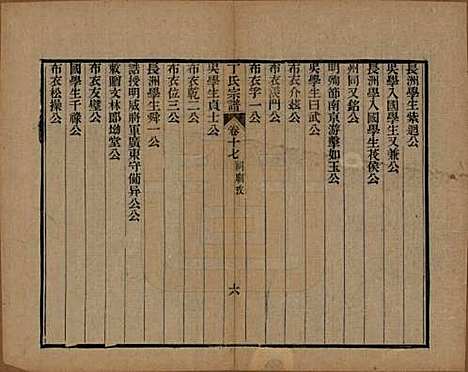 長洲學生紫廻公
吳學入國學生又兼公
長洲學入國學生花侯公
州同又銘公
明殉節南京游擊如玉公
吳學生曰武公
布衣介玆公
布衣漢門公
布衣字一公
丁氏宗譜 卷十七 祠廟攷 六
吳學生貞士公
布衣乾二公
布衣位三公
長洲學生舜一公
誥授明威將軍廣東守備异公公
敕贈文林郎増堂公
國學生千祿公
布衣友璧公
布衣松操公